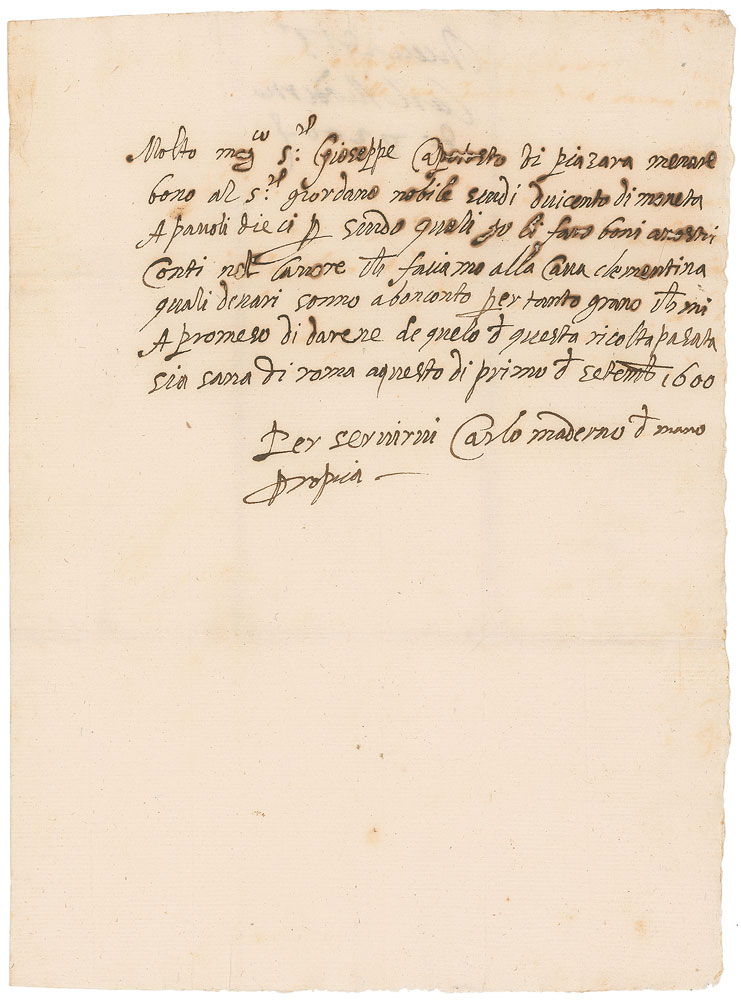 Molto mag.co s.r Gioseppe di piazara menare
bono al s.r giordano nobile scudi duicento di moneta
A pauoli dieci p scudo quali io li faro boni a vostri
Conti nel lauore ch faciamo alla Caua clementina
quali denari sonno a bonconto per tanto grano ch mi
A promeso di darene de quelo d questa ricolta pasata
di roma a questo di primo d setemb 1600
Per seruirui Carlo maderno d mano
propia